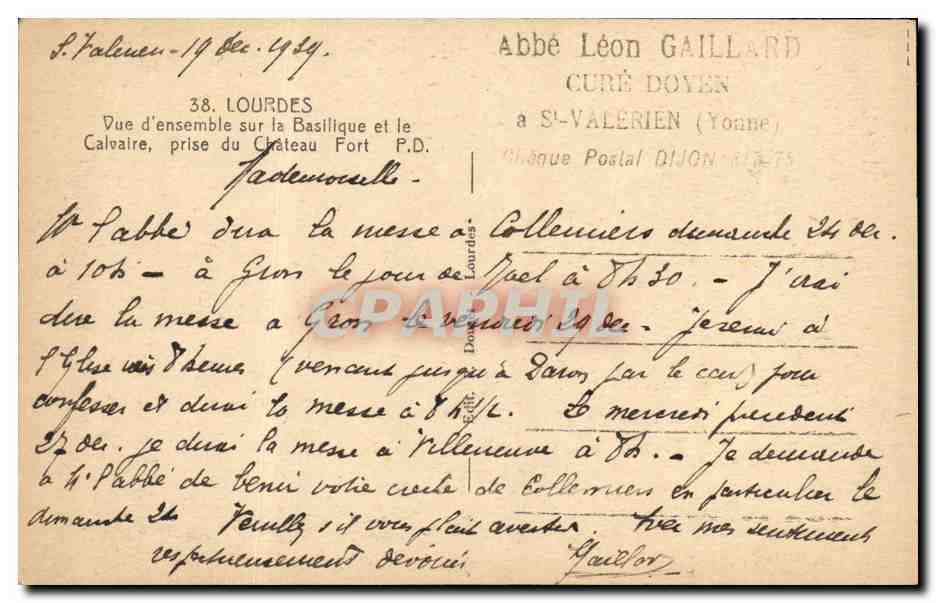 S. Valerien - 19 Dec. 1939.
Abbé Léon GAILLARD
CURÉ DOYEN
à St-VALERIEN (Yonne)
Chèque Postal DIJON
38. LOURDES
Vue d'ensemble sur la Basilique et le
Calvaire, prise du Château Fort P.D.
Mademoiselle -
l'abbé dira la messe à Collemiers dimanche 24 dec.
à 10h - à Gron le jour de Noel à 8h30. - J'irai
dire la messe a Gron le vendredi 29 dec - je serai à
l'Eglise vers 8 heures (venant jusqu'à par le car) pour
confesser et dirai la messe à 8h1/2. Le mercredi precedent
27 dec. je dirai la messe à Villeneuve à 8h. - Je demande
à M. l'abbé de benir votre creche de Collemiers en particulier le
dimanche 24 Veuillez s'il vous plait avertir. mes sentiments
respectueusement devoués Gaillard
Edit. Doucet Lourdes
CPAPHIL